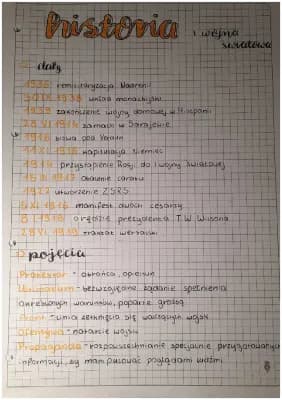 historia
I wojna światowa
daty
1936 remilitaryzacja Nadrenii
30 IX 1938 układ monachijski
1939 zakończenie wojny domowej w Hiszpanii
28 VI 1914 zamach w Sarajewie
1916 bitwa pod Verdun
11 XI 1918 kapitulacja Niemiec
przystąpienie Rosji do I wojny światowej
1917 obalenie caratu
1922 utworzenie ZSRS
5 XI 1916 manifest dwóch cesarzy
8 I 1918 orędzie prezydenta T.W. Wilsona
28 VI 1919 traktat wersalski
pojęcia
Protektor - obrońca, opiekun
Ultimatum - bezwzględne żądanie spełnienia
określonych warunków, poparte groźbą
Front - linia zetknięcia się walczących wojsk
Ofensywa - natarcie wojsk
Propaganda - rozpowszechnianie specjalnie przygotowanych
informacji, by manipulować poglądami ludźmi